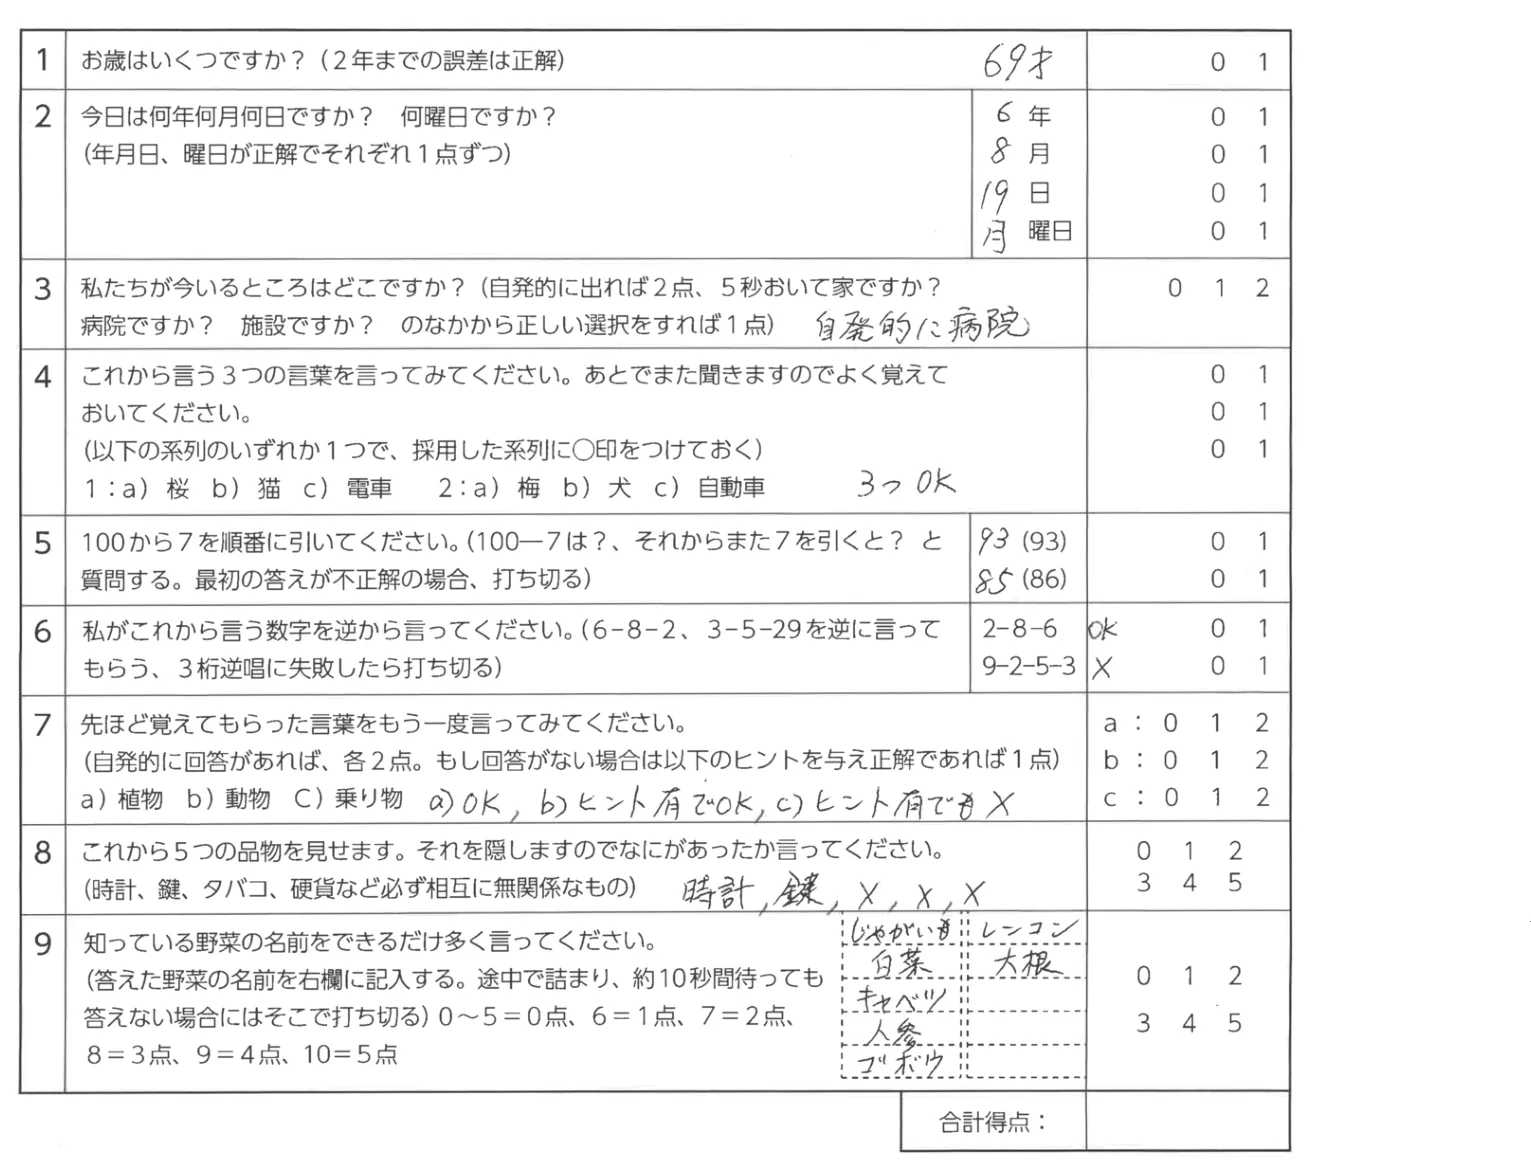 1 お歳はいくつですか？（２年までの誤差は正解） 69才 0 1
2 今日は何年何月何日ですか？　何曜日ですか？ 6 年 0 1
（年月日、曜日が正解でそれぞれ１点ずつ） 8 月 0 1
19 日 0 1
月 曜日 0 1
3 私たちが今いるところはどこですか？（自発的に出れば２点、５秒おいて家ですか？ 0 1 2
病院ですか？　施設ですか？　のなかから正しい選択をすれば１点） 自発的に病院
4 これから言う３つの言葉を言ってみてください。あとでまた聞きますのでよく覚えて 0 1
おいてください。 0 1
（以下の系列のいずれか１つで、採用した系列に○印をつけておく） 0 1
１：a）桜　b）猫　c）電車　　２：a）梅　b）犬　c）自動車 3つ OK
5 100から７を順番に引いてください。（100―７は？、それからまた７を引くと？　と 93 (93) 0 1
質問する。最初の答えが不正解の場合、打ち切る） 85 (86) 0 1
6 私がこれから言う数字を逆から言ってください。（６−８−２、３−５−29を逆に言って 2-8-6 OK 0 1
もらう、３桁逆唱に失敗したら打ち切る） 9-2-5-3 X 0 1
7 先ほど覚えてもらった言葉をもう一度言ってみてください。 a：0 1 2
（自発的に回答があれば、各２点。もし回答がない場合は以下のヒントを与え正解であれば１点） b：0 1 2
a）植物　b）動物　C）乗り物 a)OK, b)ヒント有でOK, c)ヒント有でもX c：0 1 2
8 これから５つの品物を見せます。それを隠しますのでなにがあったか言ってください。 0 1 2
（時計、鍵、タバコ、硬貨など必ず相互に無関係なもの） 時計, 鍵, X, X, X 3 4 5
じゃがいも レンコン
9 知っている野菜の名前をできるだけ多く言ってください。
白菜 大根
（答えた野菜の名前を右欄に記入する。途中で詰まり、約10秒間待っても 0 1 2
キャベツ
答えない場合にはそこで打ち切る）０～５＝０点、６＝１点、７＝２点、 3 4 5
人参
８＝３点、９＝４点、10＝５点
ゴボウ
合計得点：